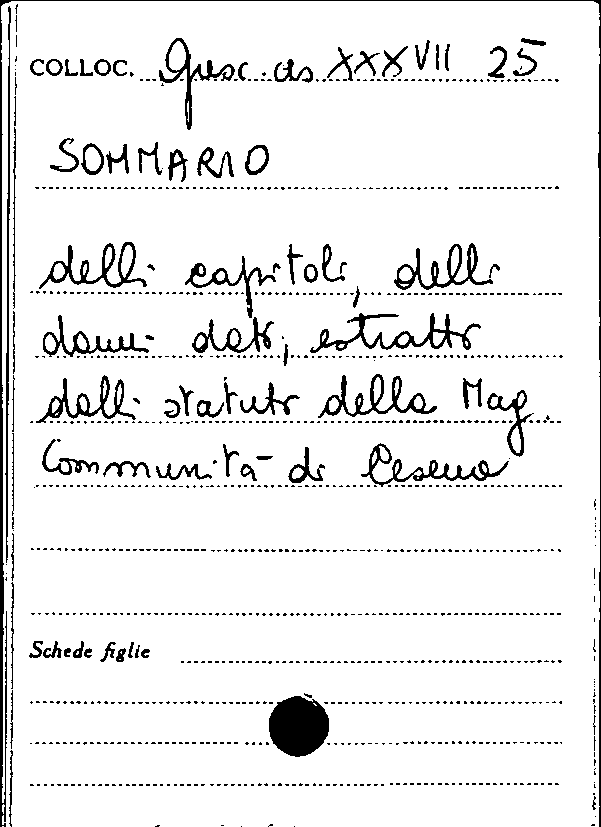 COLLOC. Gusc. as XXXVII 25
SOMMARIO
delli capitoli, delli
danni dati, estratto
dalli statuti della Mag.
Communità di Cesena
Schede figlie